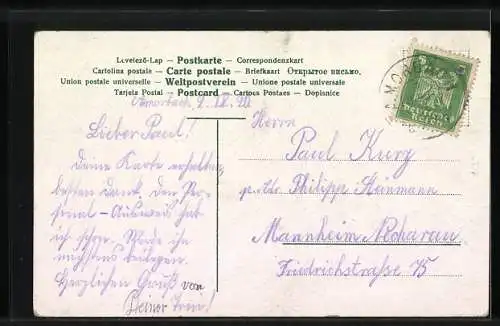 Levelező-Lap – Postkarte – Correspondenzkart
Cartolina postale – Carte postale – Briefkaart Открытое письмо,
Union postale universelle – Weltpostverein – Unione postale universale
Tarjeta Postal – Postcard – Cartoes Postaes – Dopisnice
Amorbach, 9.
Lieber Paul!
Deine Karte erhalten
besten Dank. Den Per-
sonal-Ausweis hab
ich schon. Werde ihn
nächstens beilegen.
Herzlichen Gruß von
Deiner
Herrn
Paul Kurz
Philipp Heinmann
Mannheim Neckarau
Friedrichstraße 75
AMORBACH
5 5
Deutsches
Reich